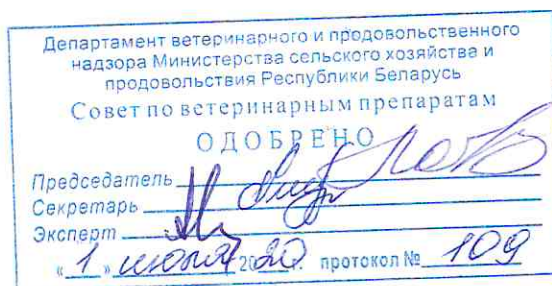 Департамент ветеринарного и продовольственного
надзора Министерства сельского хозяйства и
продовольствия Республики Беларусь
Совет по ветеринарным препаратам
ОДОБРЕНО
Председатель
Секретарь
Эксперт
«1» 2020г. протокол № 109